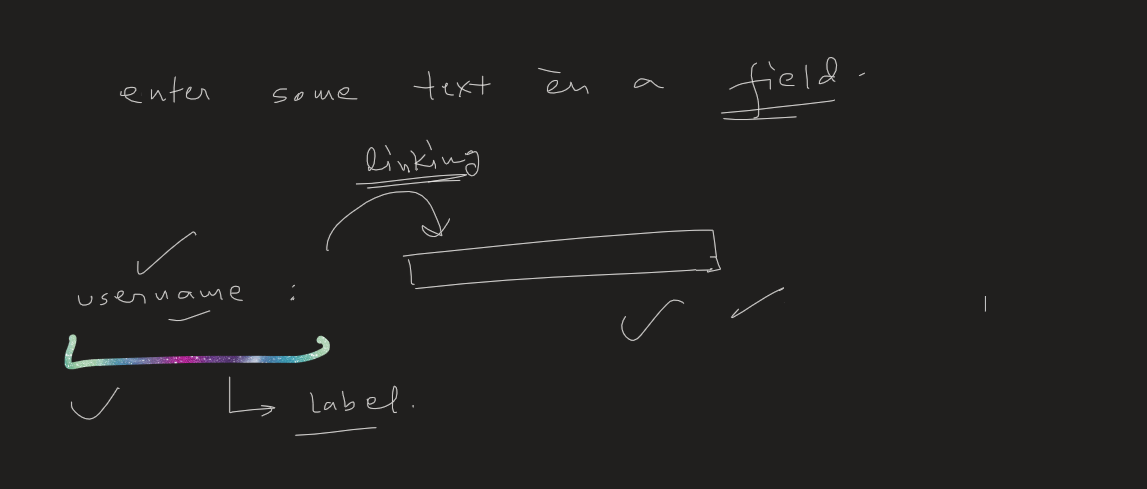 enter some text in a field.
linking
username :
Label.